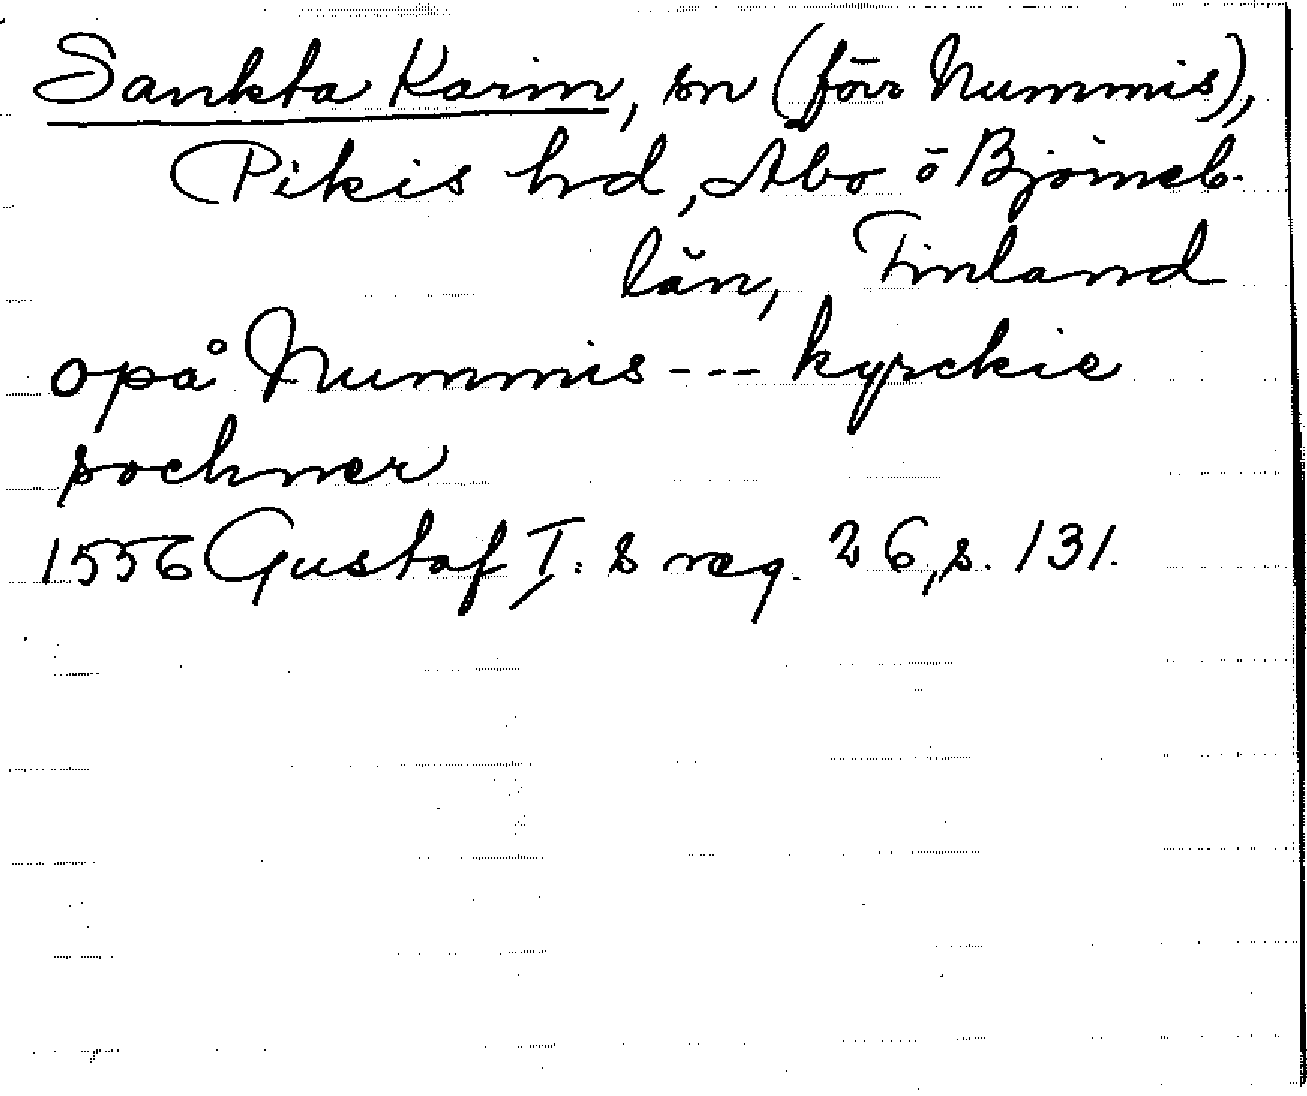 Sankta Karin, sn (förr Nummis),
Pikis hrd, Åbo o Björneb.
län, Finland
opå Nummis --- kyrckie
sochner
1556 Gustaf I:s reg. 26, s. 131.